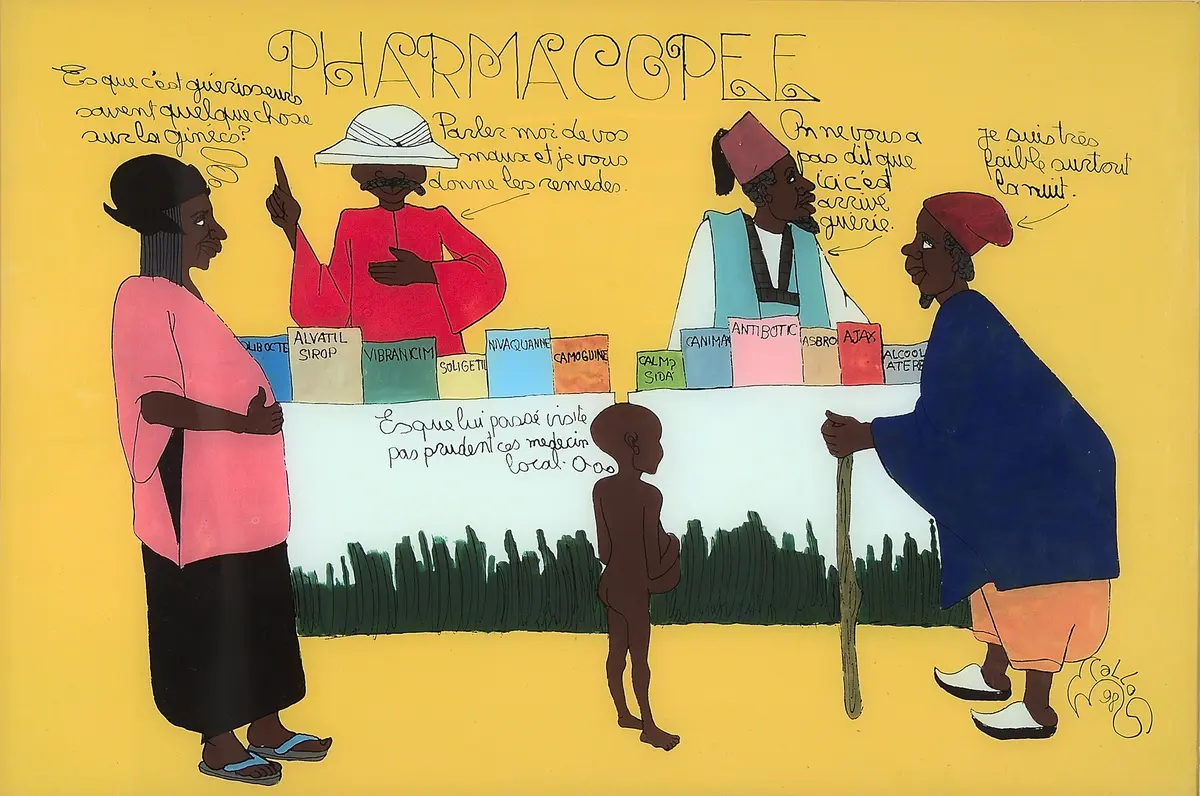 PHARMACOPEE
Es que c'est guérisseurs
savent quelque chose
sur la ginéco?
Parler moi de vos
maux et je vous
donne les remedes.
On ne vous a
pas dit que
ici c'est
arrivé
guérie.
Je suis très
faible surtout
la nuit.
OLIBOCTE
ALVATIL
SIROP
VIBRANICIM
SOLIGETIL
NIVAQUANNE
CAMOGUINE
CALMP
SIDA
CANIMA
ANTIBOTIC
ASBRO
AJAX
ALCOOL
ATERE
Es que lui passé visite
pas prudent ces medecin
local. O oo
Mallos
98